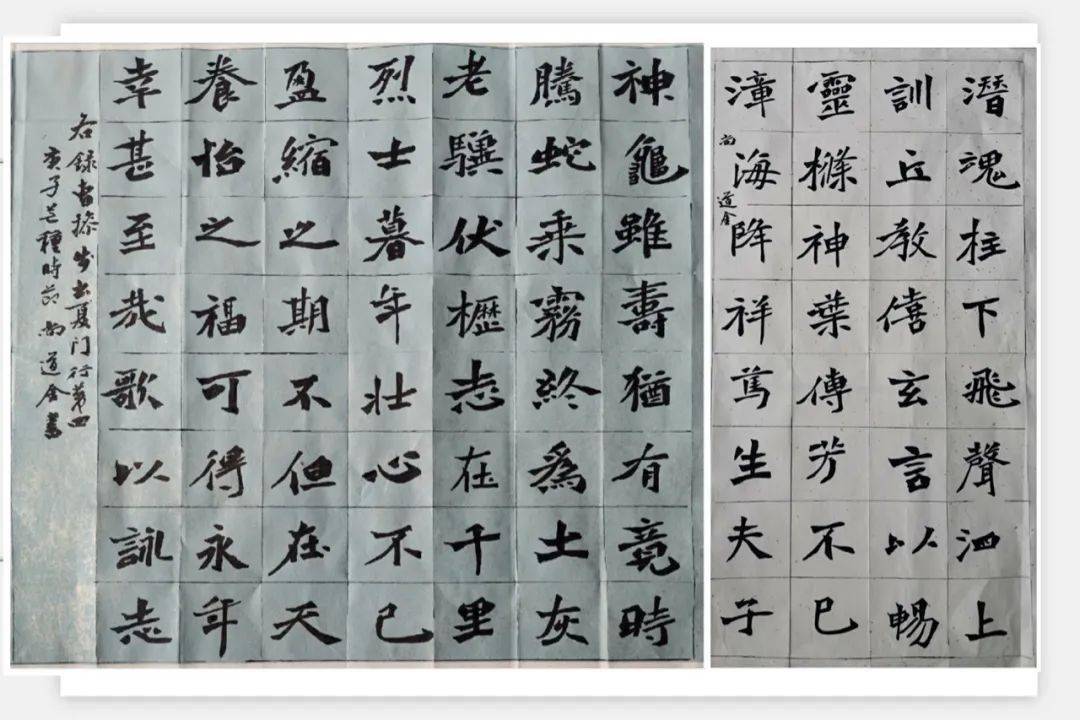 神龜雖壽猶有竟時
騰蛇乘霧終爲土灰
老驥伏櫪志在千里
烈士暮年壯心不已
盈縮之期不但在天
養怡之福可得永年
幸甚至哉歌以詠志
右録曹操步出夏门行第四
庚子芒種時节尚道金書
潛魂柱下飛聲泗上
訓丘教僖玄言以暢
靈樤神葉傳芳不已
漳海降祥篤生夫子
尚道金